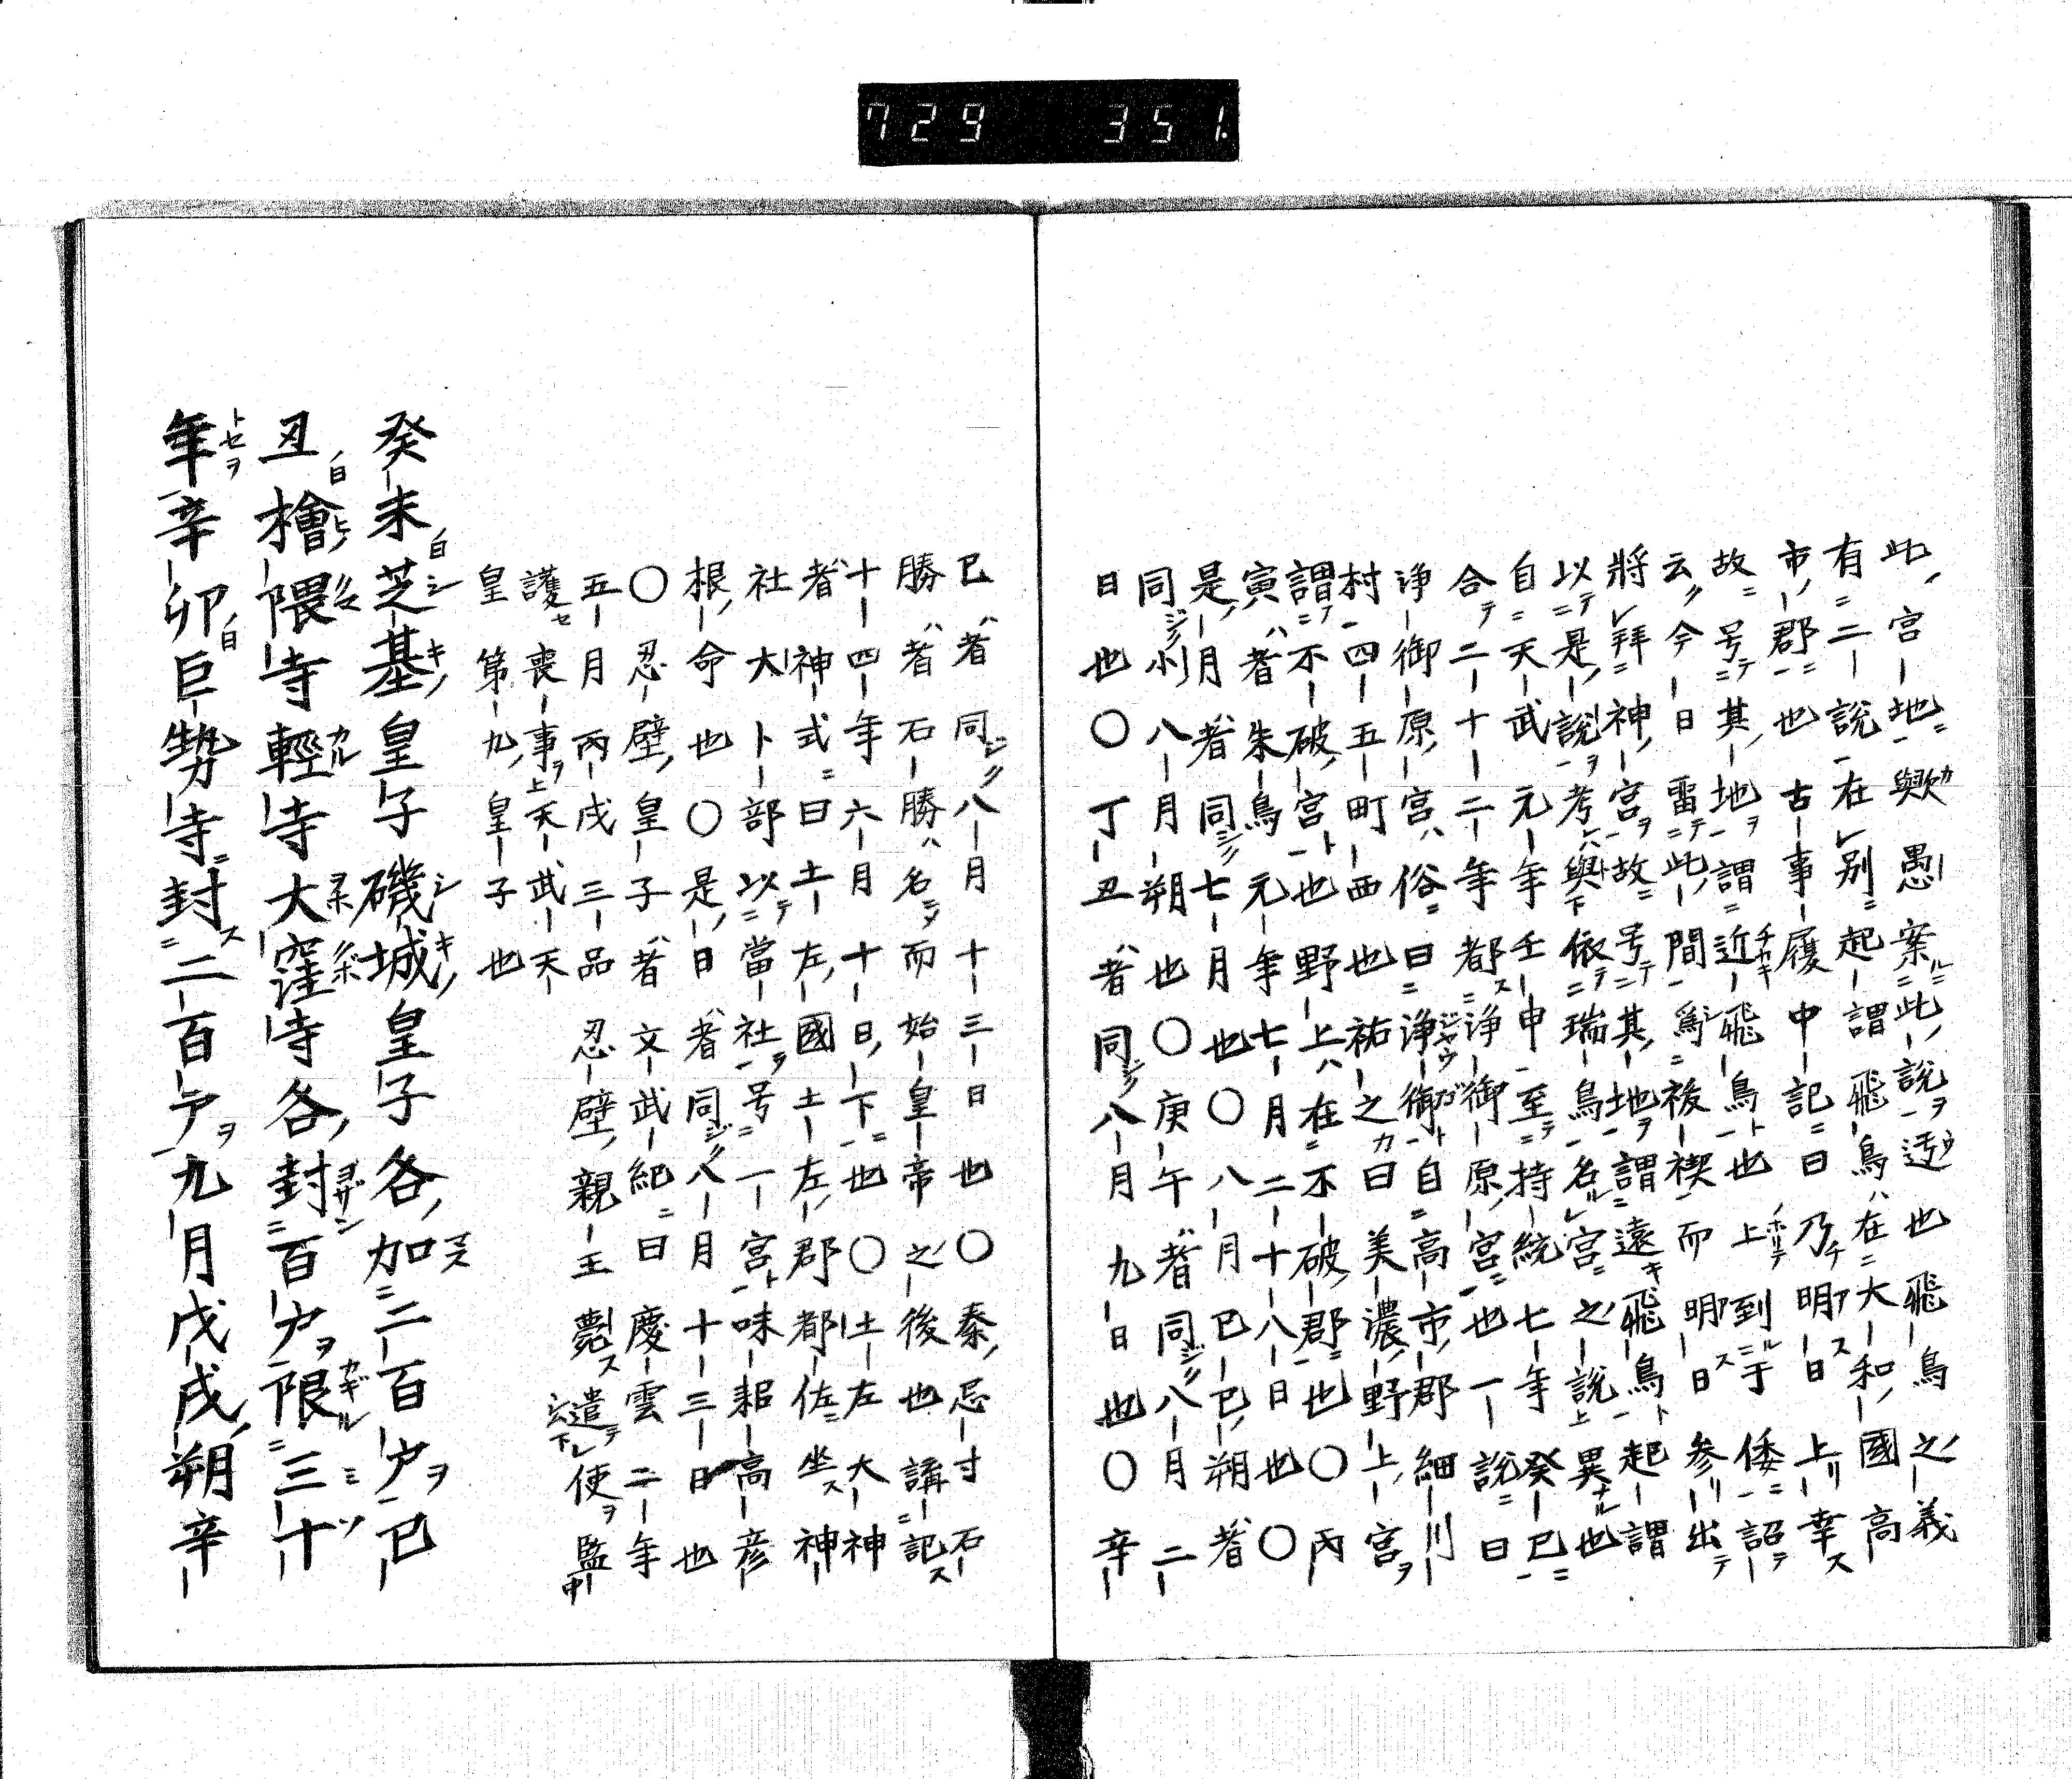 729 351
此宮地歟愚案此説迃也飛鳥之義
有二説在別起謂飛鳥在大和國高
市郡也古事履中記曰乃明日上幸
故号其地謂近飛鳥也上到于倭詔
云今日雷此間爲祓禊而明日参出
將拜神宮故号其地謂遠飛鳥起謂
以是説考與依瑞鳥名宮之説異也
自天武元年壬申至持統七年癸巳
合二十二年都浄御原宮也一説曰
浄御原宮俗曰浄御自高市郡細川
村四五町西也祐之曰美濃野上宮
謂不破宮也野上在不破郡也〇丙
寅者朱鳥元年七月二十八日也〇
是月者同七月也〇八月己巳朔者
同小八月朔也〇庚午者同八月二
日也〇丁丑者同八月九日也〇辛
巳者同八月十三日也〇秦忌寸石
勝者石勝名而始皇帝之後也講記
十四年六月十日下也〇土左大神
者神式曰土左國土左郡都佐坐神
社大卜部以當社号一宮味耜高彦
根命也〇是日者同八月十三日也
〇忍壁皇子者文武紀曰慶雲二年
五月丙戌三品忍壁親王薨遣使監
護喪事天武天
皇第九皇子也
癸未芝基皇子磯城皇子各加二百戸巳
丑檜隈寺輕寺大窪寺各封百戸限三十
年辛卯巨勢寺封二百戸九月戊戌朔辛